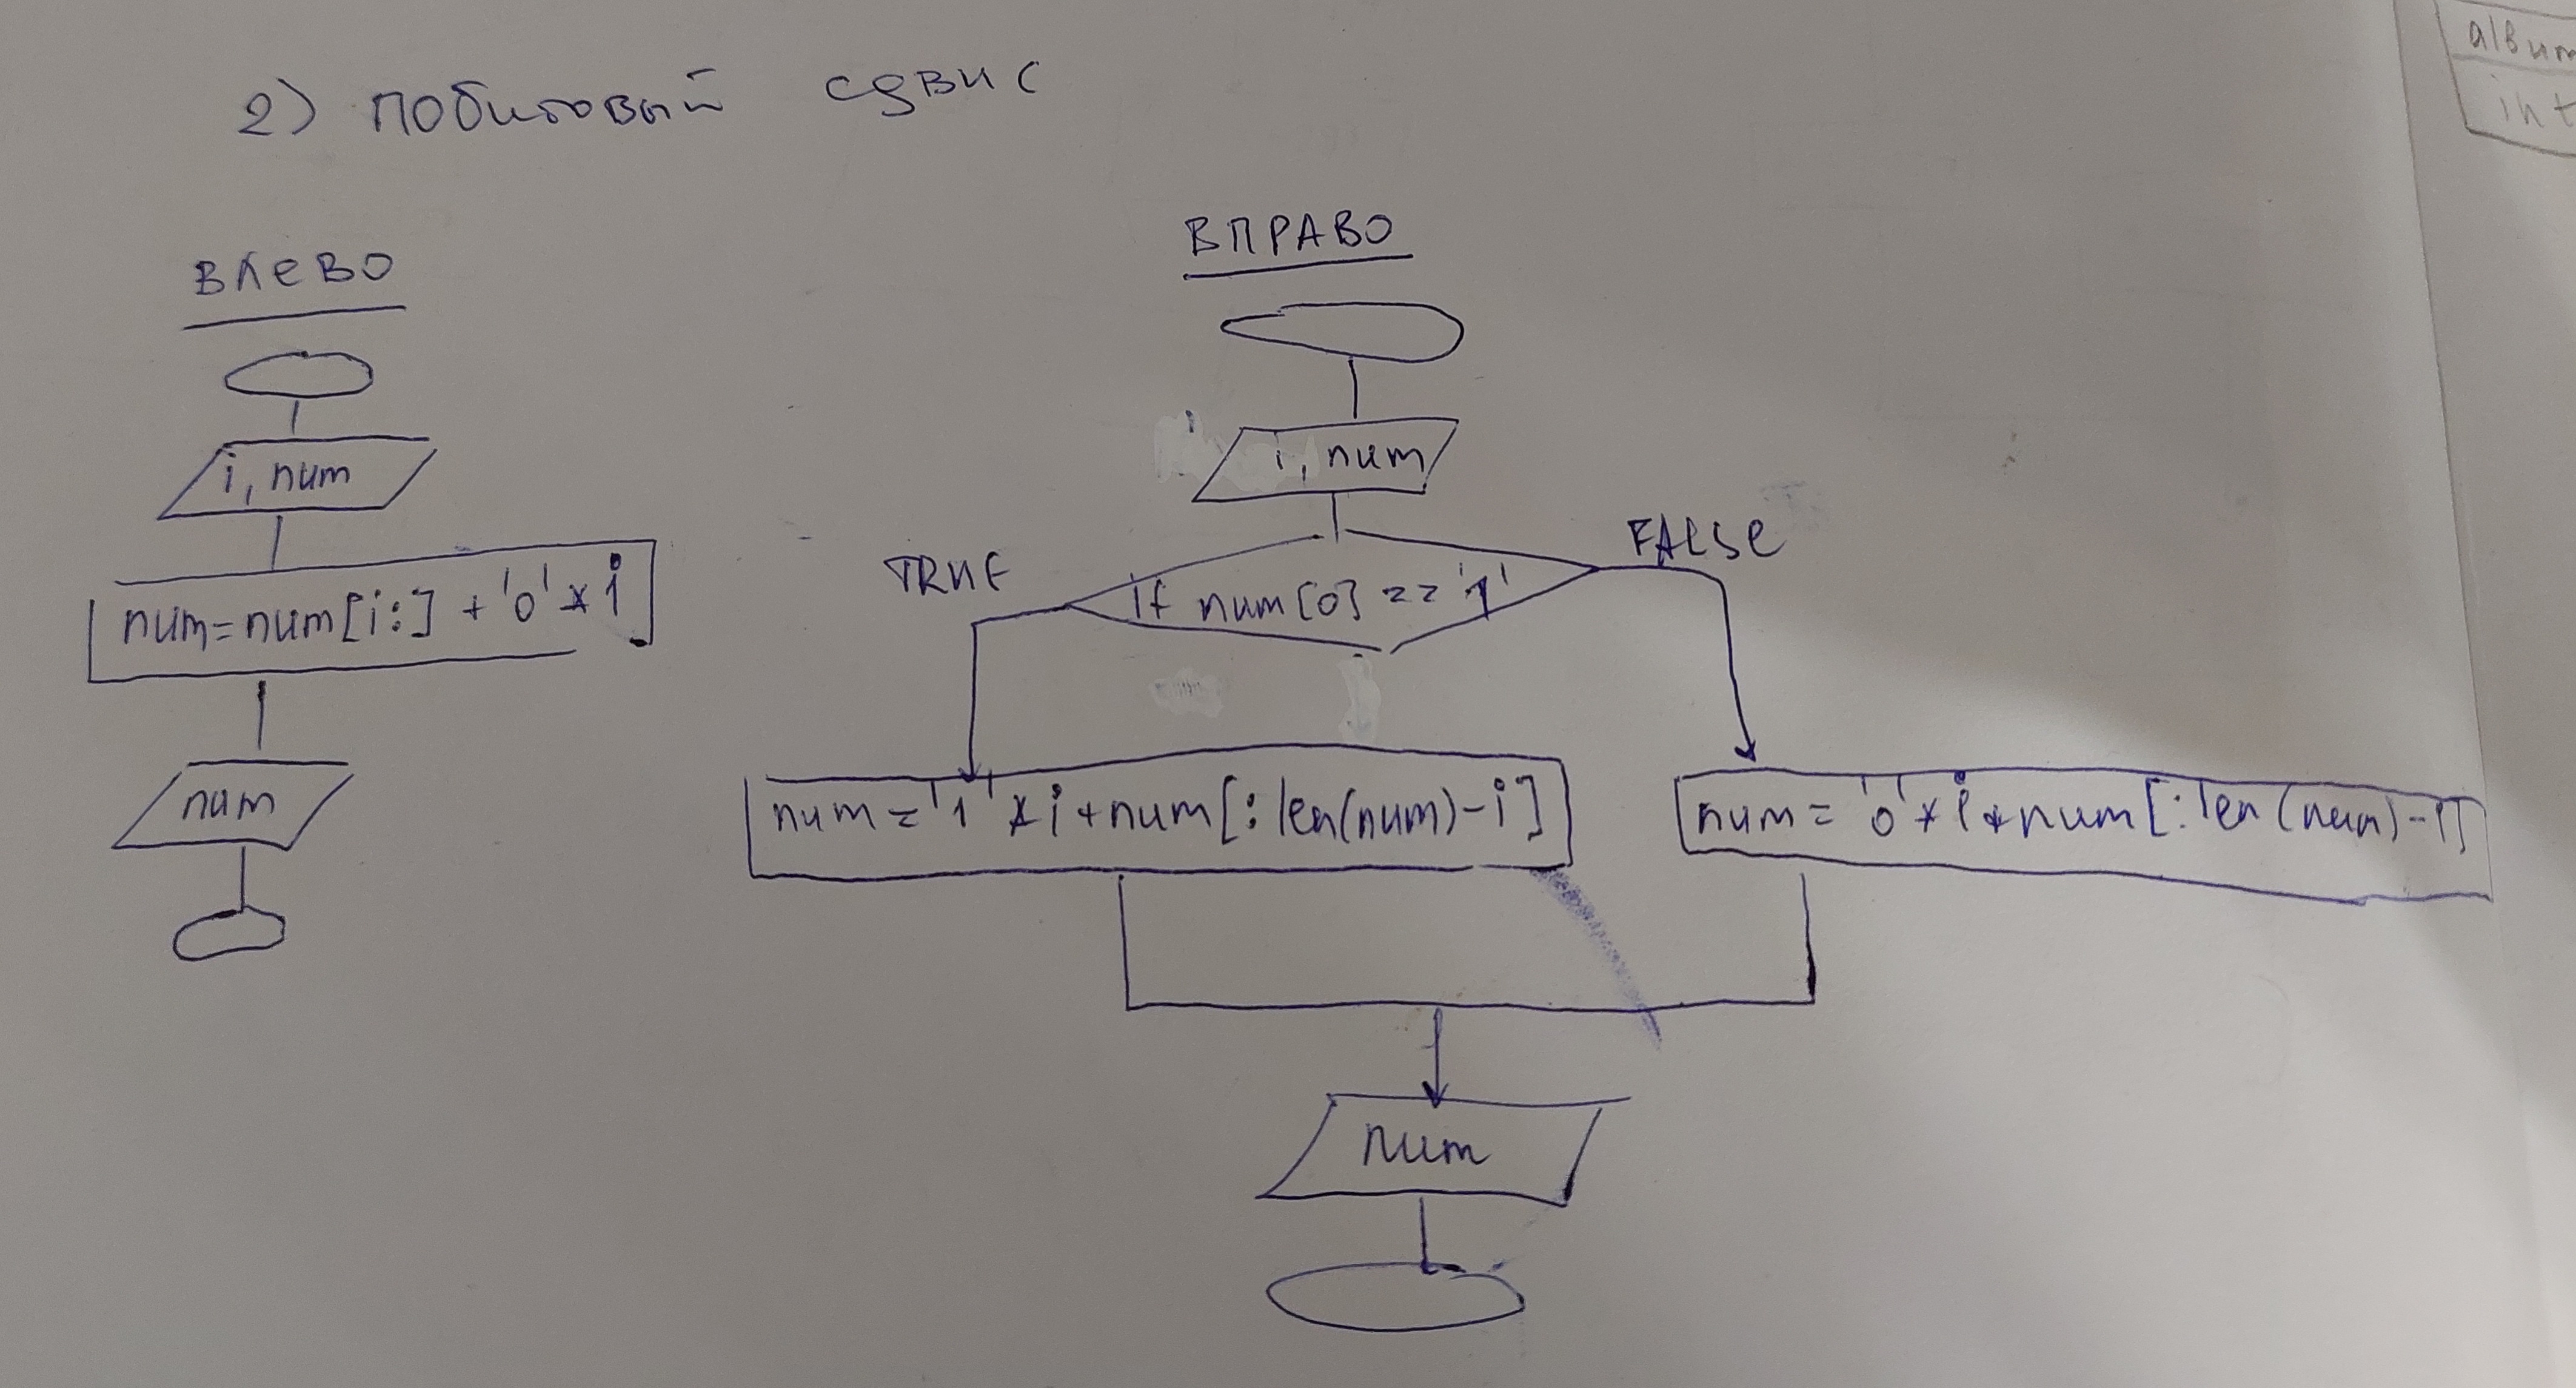 2) побитовый сдвис
влево
i, num
num=num[i:] + '0' * i
num
ВПРАВО
i, num
if num[0] == '1'
TRUE
FALSE
num = '1' * i + num[: len(num) - i]
num = '0' * i + num[: len(num) - i]
num
album
int